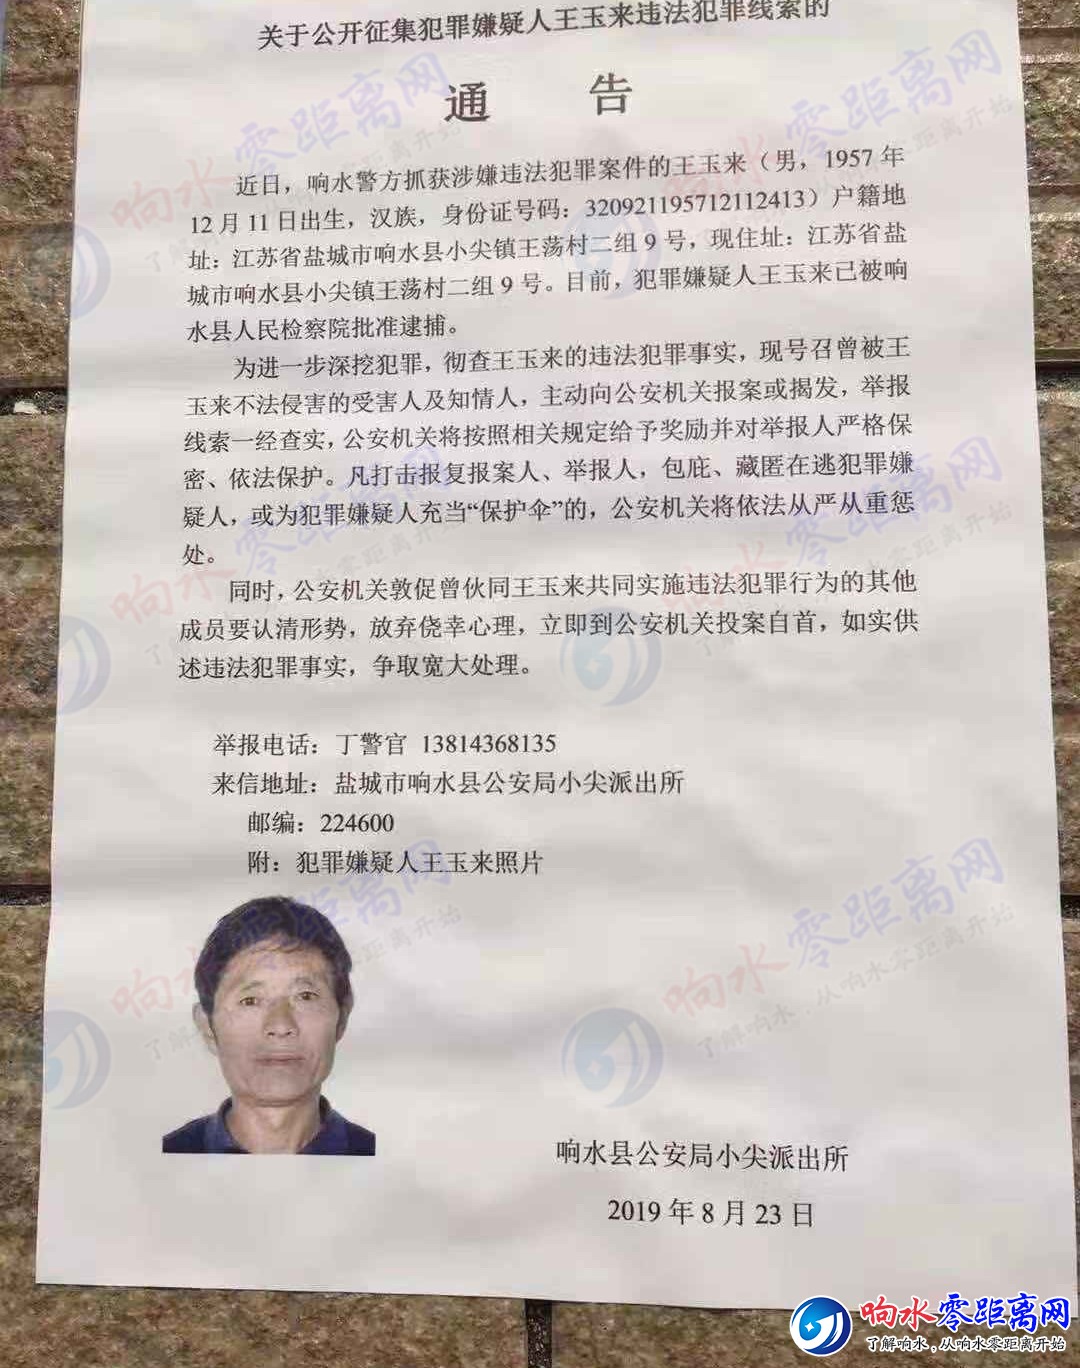 关于公开征集犯罪嫌疑人王玉来违法犯罪线索的
通 告
近日，响水警方抓获涉嫌违法犯罪案件的王玉来（男，1957年
12月11日出生，汉族，身份证号码：320921195712112413）户籍地
址：江苏省盐城市响水县小尖镇王荡村二组9号，现住址：江苏省盐
城市响水县小尖镇王荡村二组9号。目前，犯罪嫌疑人王玉来已被响
水县人民检察院批准逮捕。
为进一步深挖犯罪，彻查王玉来的违法犯罪事实，现号召曾被王
玉来不法侵害的受害人及知情人，主动向公安机关报案或揭发，举报
线索一经查实，公安机关将按照相关规定给予奖励并对举报人严格保
密、依法保护。凡打击报复报案人、举报人，包庇、藏匿在逃犯罪嫌
疑人，或为犯罪嫌疑人充当“保护伞”的，公安机关将依法从严从重惩
处。
同时，公安机关敦促曾伙同王玉来共同实施违法犯罪行为的其他
成员要认清形势，放弃侥幸心理，立即到公安机关投案自首，如实供
述违法犯罪事实，争取宽大处理。
举报电话：丁警官 13814368135
来信地址：盐城市响水县公安局小尖派出所
邮编：224600
附：犯罪嫌疑人王玉来照片
响水县公安局小尖派出所
2019年8月23日
响水零距离网
了解响水,从响水零距离开始